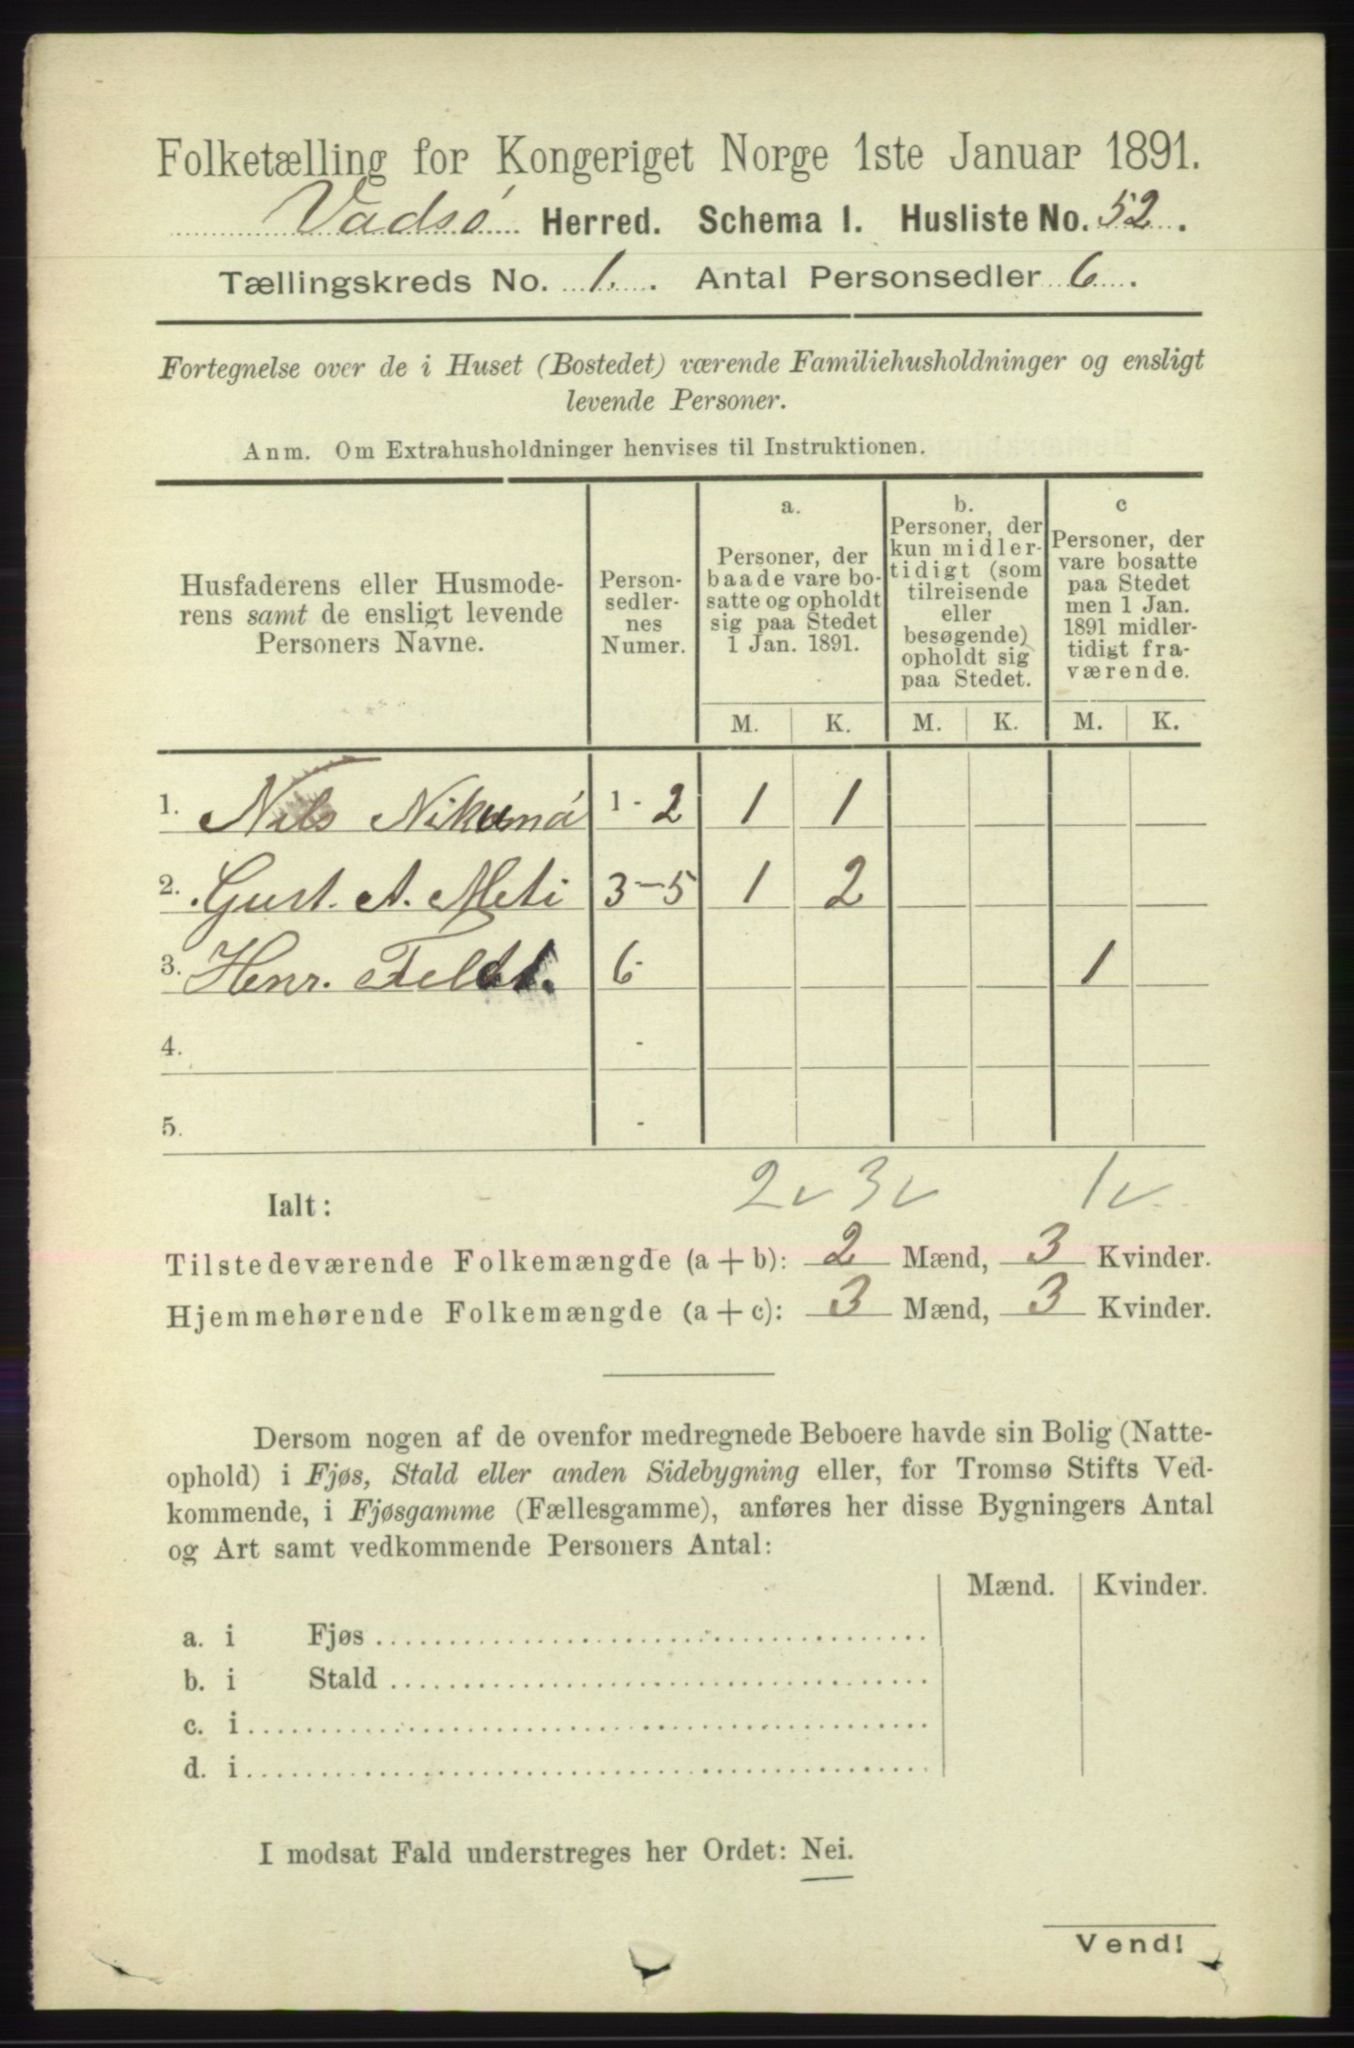 Folketælling for Kongeriget Norge 1ste Januar 1891.
Vadsø Herred. Schema I. Husliste No. 52.
Tællingskreds No. 1. Antal Personsedler 6.
Fortegnelse over de i Huset (Bostedet) værende Familiehusholdninger og ensligt
levende Personer.
Anm. Om Extrahusholdninger henvises til Instruktionen.
Husfaderens eller Husmode-
rens samt de ensligt levende
Personers Navne.
Person-
sedler-
nes
Numer.
a.
Personer, der
baade vare bo-
satte og opholdt
sig paa Stedet
1 Jan. 1891.
b.
Personer, der
kun midler-
tidigt (som
tilreisende
eller
besøgende)
opholdt sig
paa Stedet.
c
Personer, der
vare bosatte
paa Stedet
men 1 Jan.
1891 midler-
tidigt fra-
værende.
M. K. M. K. M. K.
1. Nils Nikuna 1-2 1 1
2. Gust. A. Meti 3-5 1 2
3. Henr. Feldt. 6- 1
4. -
5. -
Ialt: 2 v 3 v 1 v
Tilstedeværende Folkemængde (a + b): 2 Mænd, 3 Kvinder.
Hjemmehørende Folkemængde (a + c): 3 Mænd, 3 Kvinder.
Dersom nogen af de ovenfor medregnede Beboere havde sin Bolig (Natte-
ophold) i Fjøs, Stald eller anden Sidebygning eller, for Tromsø Stifts Ved-
kommende, i Fjøsgamme (Fællesgamme), anføres her disse Bygningers Antal
og Art samt vedkommende Personers Antal:
Mænd. Kvinder.
a. i Fjøs
b. i Stald
c. i
d. i
I modsat Fald understreges her Ordet: Nei.
Vend!